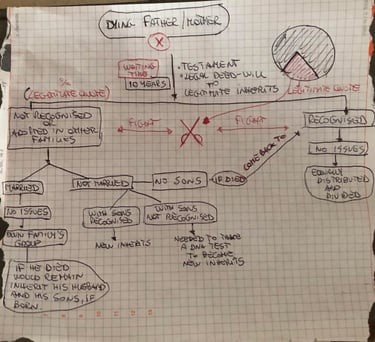 DYING FATHER/MOTHER
X
WAITING
TIME
10 YEARS
• TESTAMENT
• LEGAL DEED-WILL
TO
LEGITIMATE INHERITS
(LEGITIMATE QUOTE)
LEGITIMATE QUOTE
NOT RECOGNISED
OR
ADOPTED IN OTHER
FAMILIES
FIGHT
FIGHT
RECOGNISED
NO ISSUES
EQUALLY
DISTRIBUTED
AND
DIVIDED
COME BACK TO
MARRIED
NOT MARRIED
NO SONS
IF DIED
NO ISSUES
WITH SONS
RECOGNISED
WITH SONS
NOT RECOGNISED
OWN FAMILY'S
GROUP
NEW INHERITS
NEEDED TO MAKE
A DNA TEST
TO BECOME
NEW INHERITS
IF HE DIED
WOULD REMAIN
INHERIT HIS HUSBAND
AND HIS SONS, IF
BORN.